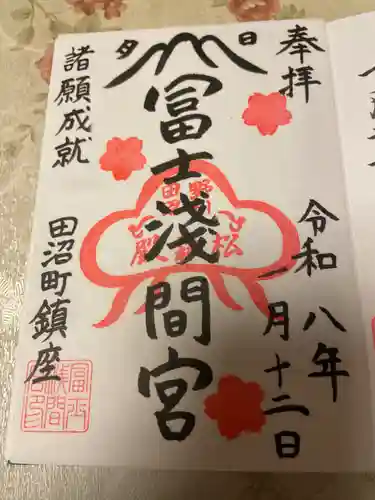 奉拝
令和八年
一月十二日
夕 日
冨士浅間宮
諸願成就
田沼町鎮座